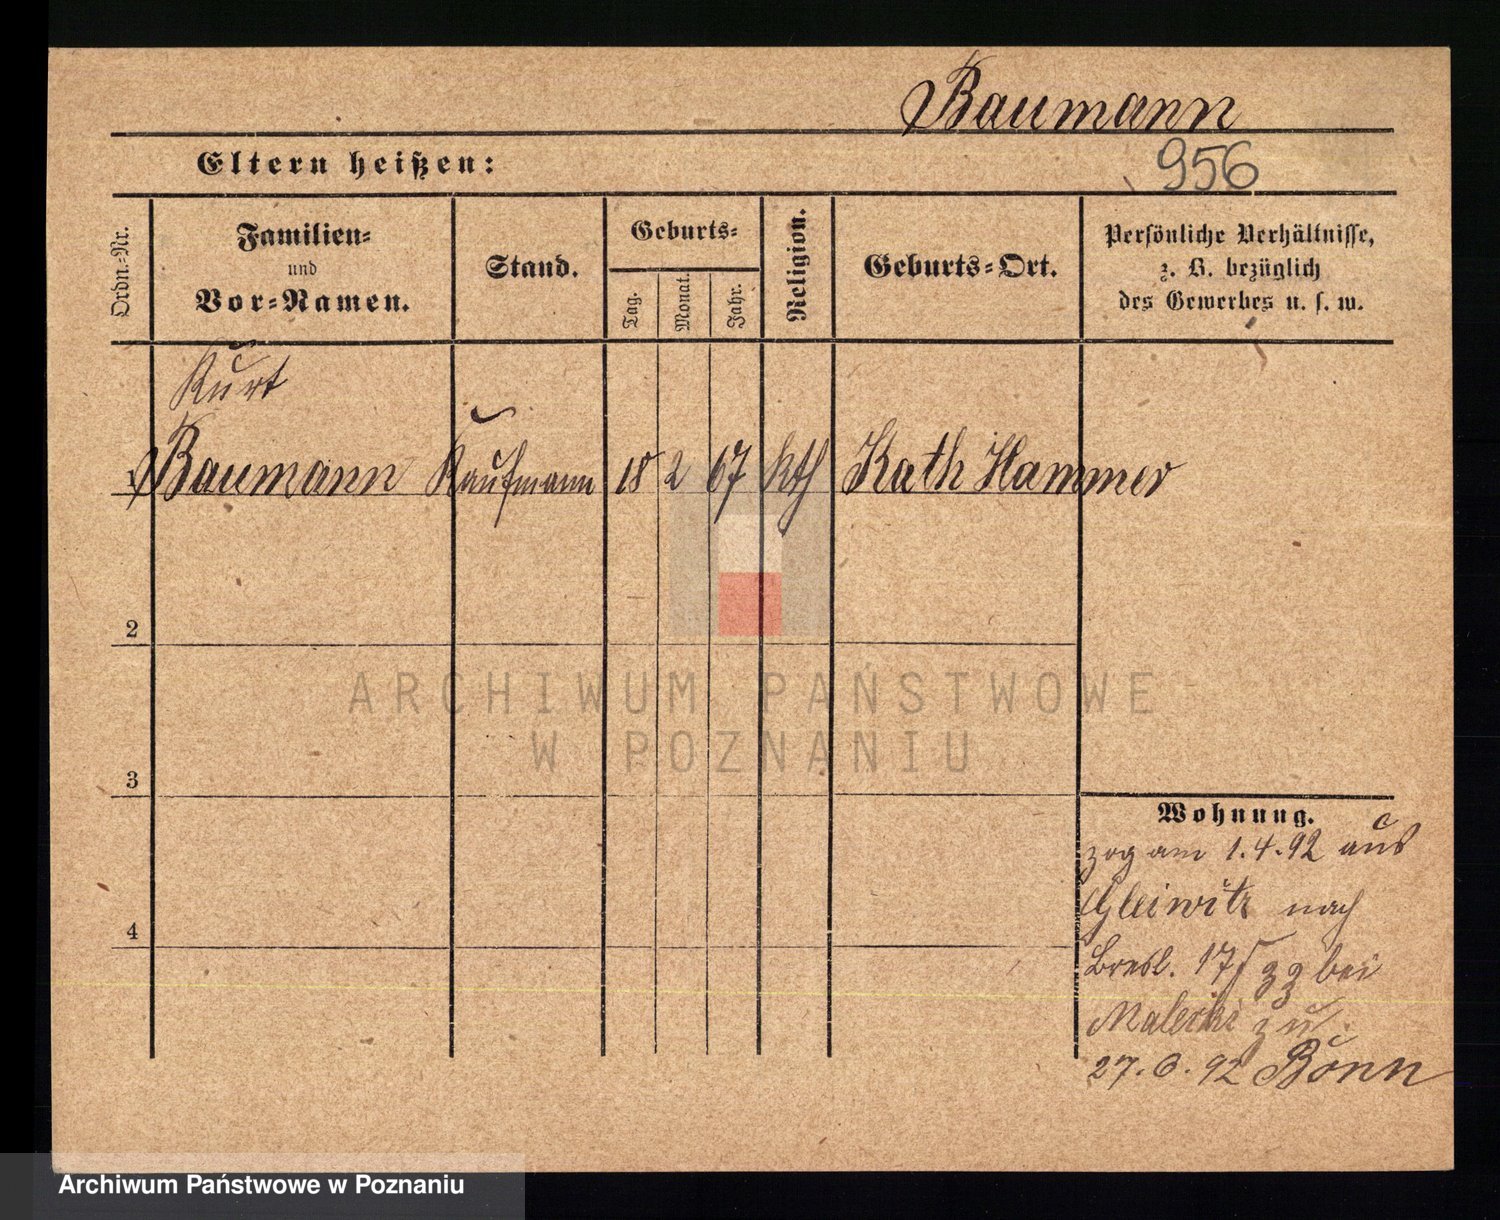 Baumann
Eltern heißen:
956
Ordn.-Nr.
Familien-
und
Vor-Namen.
Stand.
Geburts-
Tag.
Monat.
Jahr.
Religion.
Geburts-Ort.
Persönliche Verhältnisse,
z. B. bezüglich
des Gewerbes u. s. w.
Kurt
1 Baumann Kaufmann 18 2 67 kth Kath Hammer
2
3
4
Wohnung.
zog am 1.4.92 aus
Gleiwitz nach
Bresl. 17 bei
27.6.92 Bonn
ARCHIWUM PAŃSTWOWE
W POZNANIU
Archiwum Państwowe w Poznaniu